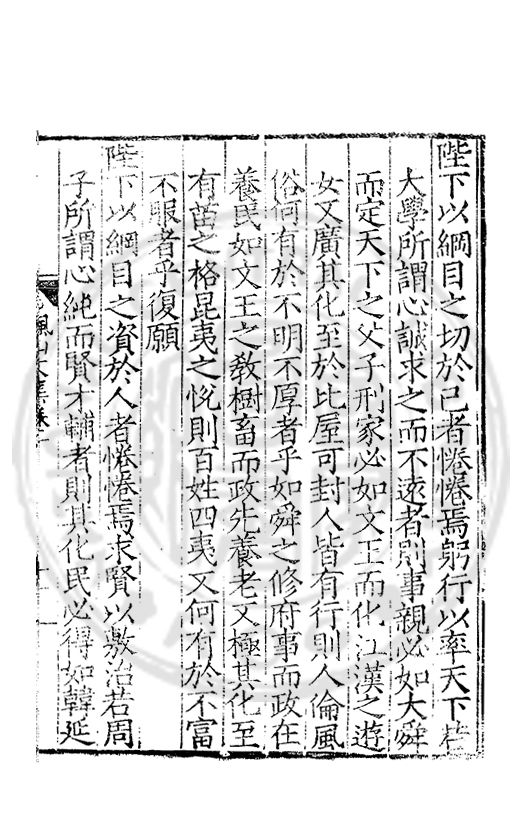 陛下以綱目之切於己者惓惓焉躬行以率天下若
大學所謂心誠求之而不遠者則事親必如大舜
而定天下之父子刑家必如文王而化江漢之遊
女又廣其化至於比屋可封人皆有行則人倫風
俗何有於不明不厚者乎如舜之修府事而政在
養民如文王之教樹畜而政先養老又極其化至
有苗之格昆夷之恱則百姓四夷又何有於不富
不服者乎復願
陛下以綱目之資於人者惓惓焉求賢以敷治若周
子所謂心純而賢才輔者則其化民必得如韓延
楓山文集卷